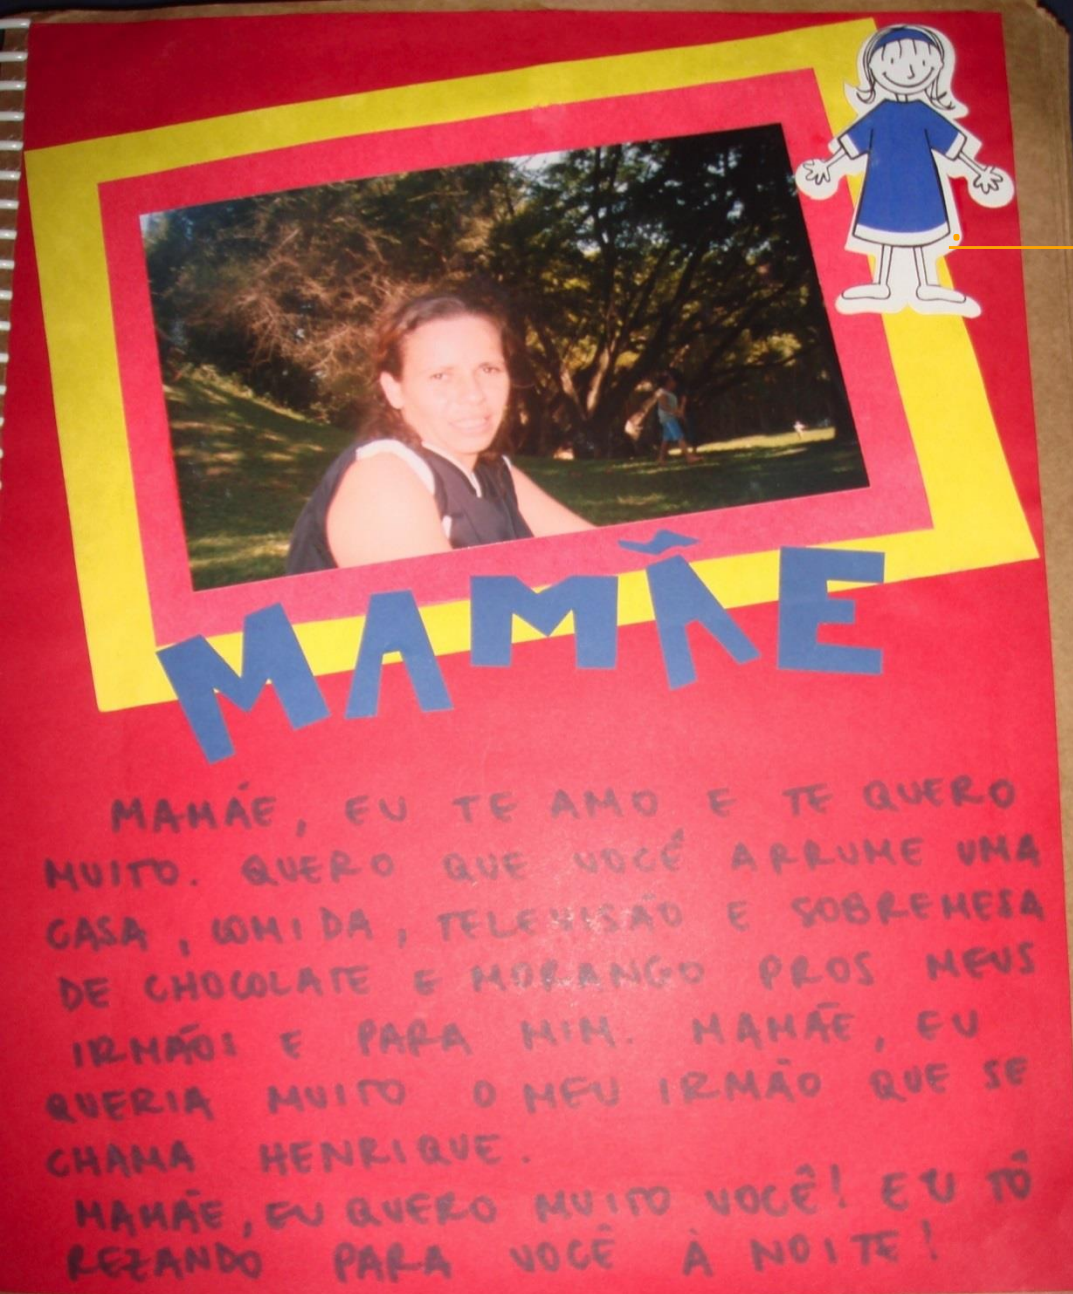 MAMÃE
MAMÃE, EU TE AMO E TE QUERO
MUITO. QUERO QUE VOCÊ ARRUME UMA
CASA, COMIDA, TELEVISÃO E SOBREMESA
DE CHOCOLATE E MORANGO PROS MEUS
IRMÃOS E PARA MIM. MAMÃE, EU
QUERIA MUITO O MEU IRMÃO QUE SE
CHAMA HENRIQUE.
MAMÃE, EU QUERO MUITO VOCÊ! EU TÔ
REZANDO PARA VOCÊ À NOITE!